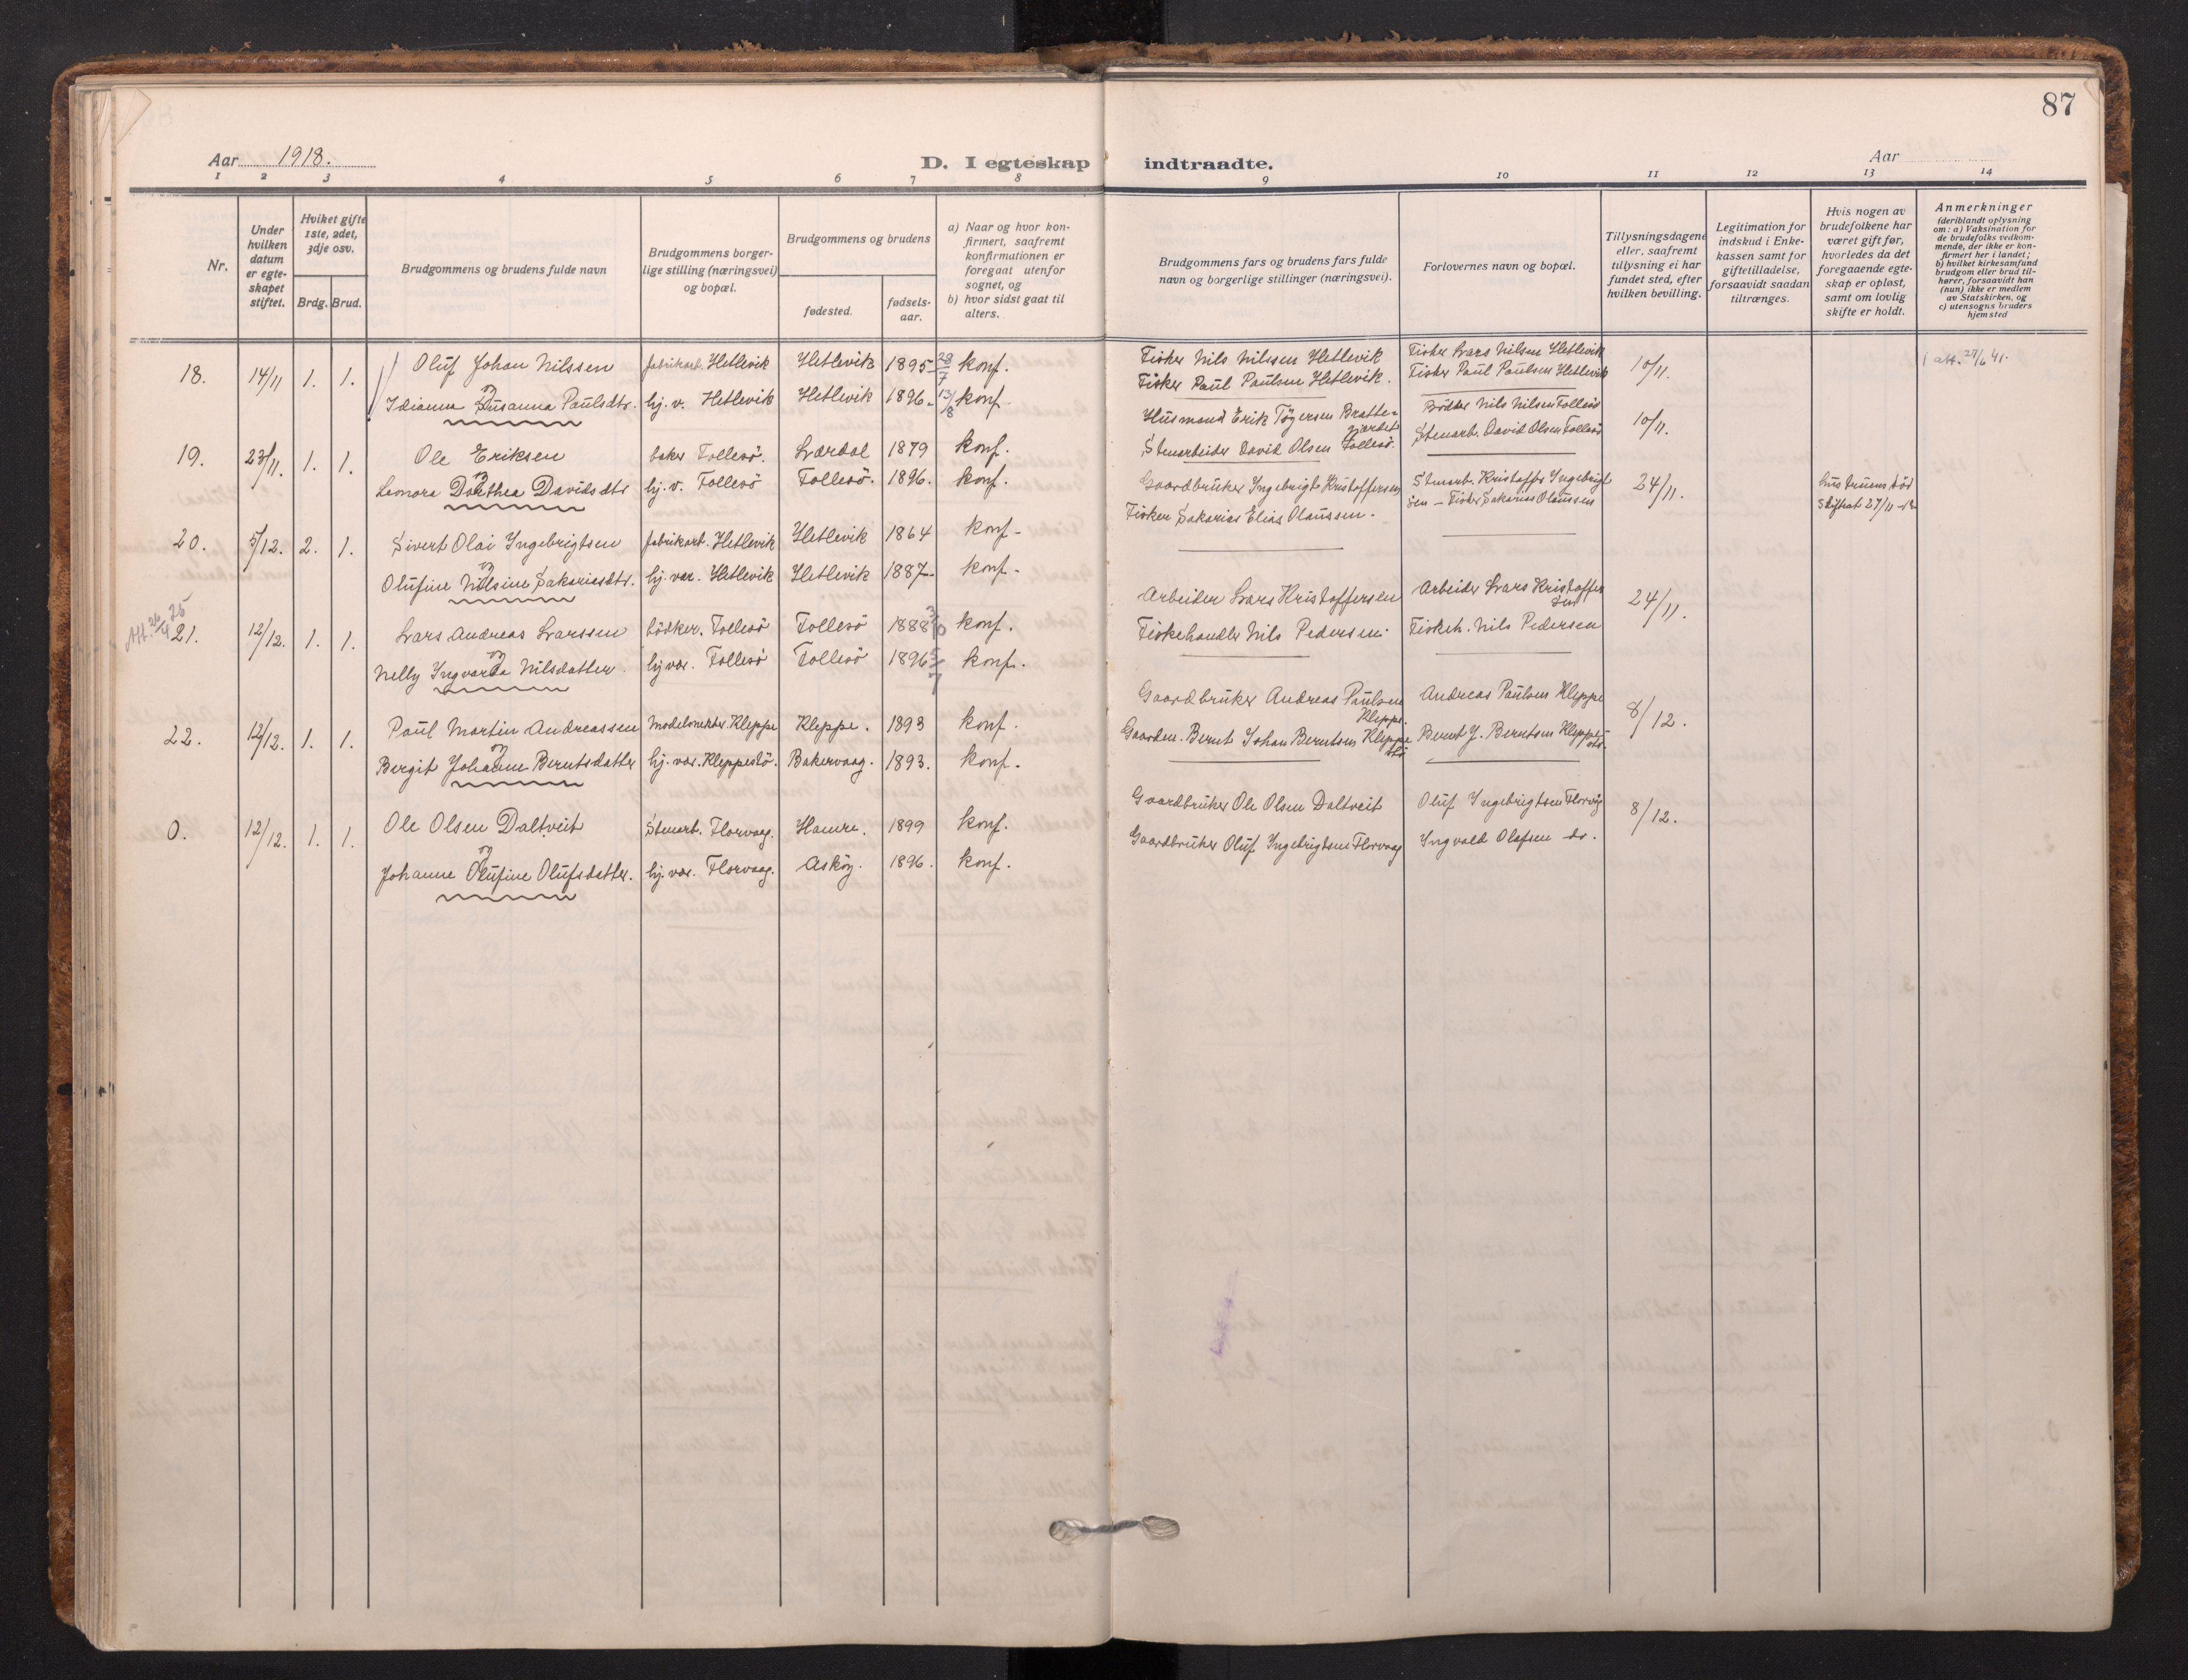 87
Aar 1918.
D. I egteskap indtraadte.
Aar
1 2 3 4 5 6 7 8 9 10 11 12 13 14
Nr.
Under hvilken datum er egteskapet stiftet.
Hvilket gifte 1ste, 2det, 3dje osv.
Brdg. Brud.
Brudgommens og brudens fulde navn
Brudgommens borgerlige stilling (næringsvei) og bopæl.
Brudgommens og brudens
fødested.
fødselsaar.
a) Naar og hvor konfirmert, saafremt konfirmationen er foregaat utenfor sognet, og
b) hvor sidst gaat til alters.
Brudgommens fars og brudens fars fulde navn og borgerlige stillinger (næringsvei).
Forlovernes navn og bopæl.
Tillysningsdagene eller, saafremt tillysning ei har fundet sted, efter hvilken bevilling.
Legitimation for indskud i Enkekassen samt for giftetilladelse, forsaavidt saadan tiltrænges.
Hvis nogen av brudefolkene har været gift før, hvorledes da det foregaaende egteskap er opløst, samt om lovlig skifte er holdt.
Anmerkninger
(deriblandt oplysning om: a) Vaksination for de brudefolks vedkommende, der ikke er konfirmert her i landet; b) hvilket kirkesamfund brudgom eller brud tilhører, forsaavidt han (hun) ikke er medlem av Statskirken, og c) utensogns bruders hjemsted
18. 14/11 1. 1. Oluf Johan Nilssen fabrikarb. Hetlevik Hetlevik 1895 28/7 konf.
og
Susanna Paulsdtr. hj. v. Hetlevik Hetlevik 1896. 13/8 konf.
Fisker Nils Nilssen Hetlevik Fisker Lars Nilsen Hetlevik 10/11. att. 27/6 41.
Fisker Paul Paulsen Hetlevik. Fisker Paul Paulsen Hetlevik
19. 23/11. 1. 1. Ole Eriksen baker Follesö. Lærdal 1879 konf.
og
Leonora Dorthea Davidsdtr hj. v. Follesö Follesö. 1896. konf.
Husmand Erik Tøgersen Brattegjærdet Bödker Nils Nilsen Follesö 10/11.
Stenarbeider David Olsen Follesö. Stenarb. David Olsen Follesö
20. 5/12. 2. 1. Sivert Olai Ingebrigtsen fabrikarb. Hetlevik Hetlevik 1864 konf.
og
Olufine Nilsine Sakariasdtr. hj. vær. Hetlevik Hetlevik 1887. konf.
Gaardbruker Ingebrigt Kristoffersen Stenarb. Kristoffer Ingebrigt 24/11. hustruens död
Fisker Sakarias Elias Olaussen. sen – Fisker Sakarias Olaussen Skifteat. 27/11
Att. 26/4 25
21. 12/12. 1. 1. Lars Andreas Larssen bödker. Follesö Follesö 1888 konf.
og
Nelly Ingvarda Nilsdatter. hj. vær. Follesö Follesö 1896 5/7 konf.
Arbeider Lars Kristoffersen Arbeider Lars Kristoffersen 24/11.
Fiskehandler Nils Pedersen. Fiskeh. Nils Pedersen
22. 12/12. 1. 1. Paul Martin Andreassen Modelsnekker Kleppe Kleppe. 1893 konf.
og
Bergit Johanne Berntsdatter hj. vær. Kleppestö. Bakervaag. 1893. konf.
Gaardbruker Andreas Paulsen Kleppe. Andreas Paulsen Kleppe 8/12.
Gaardm. Bernt Johan Berntsen Kleppestö Bernt J. Berntsen Kleppestö.
0. 12/12. 1. 1. Ole Olsen Daltveit Stenarb. Florvaag. Hamre. 1899 konf.
og
Johanne Olufine Olufsdatter. hj. vær. Florvaag. Askøy. 1896. konf.
Gaardbruker Ole Olsen Daltveit Oluf Ingebrigtsen Florvåg 8/12.
Gaardbruker Oluf Ingebrigtsen Florvaag Ingvald Olafsen do.